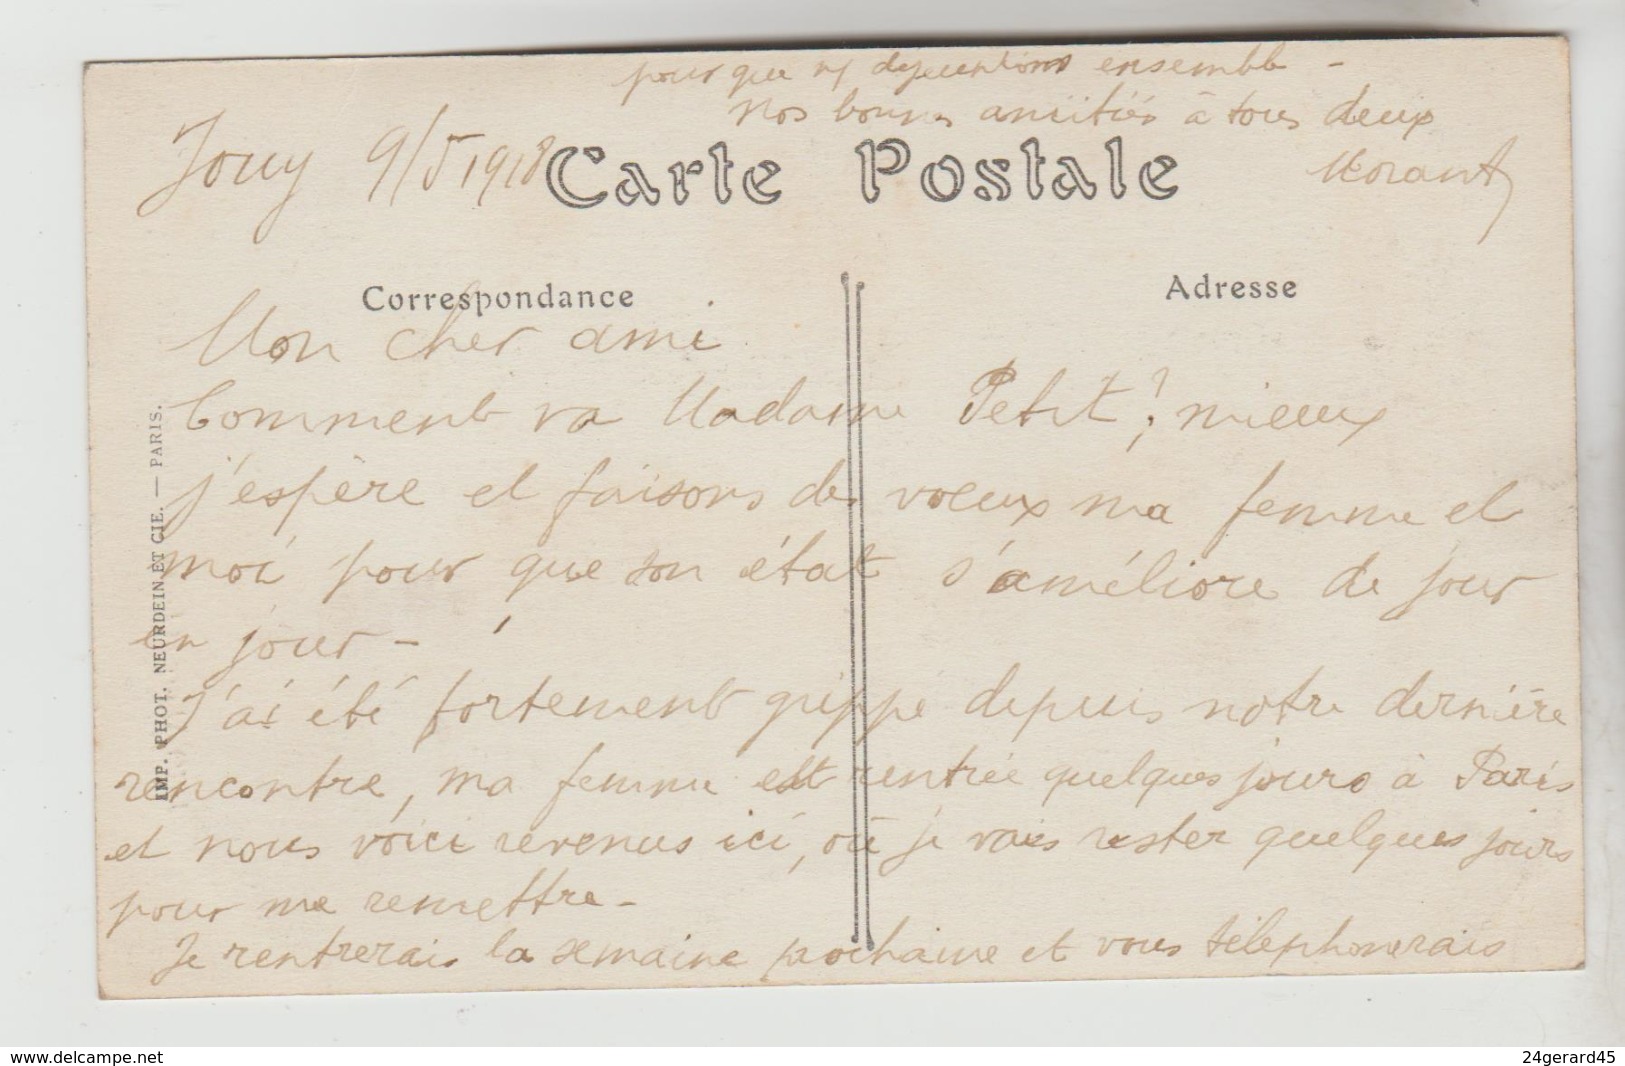 pour que ns déjeunions ensemble -
nos bonnes amitiés à tous deux
Jouy 9/5 1918
Carte Postale
Morant
Correspondance
Adresse
Mon cher ami
Comment va Madame Petit ? mieux
j'espère et faisons des voeux ma femme et
moi pour que son état s'améliore de jour
en jour -
J'ai été fortement grippé depuis notre dernière
rencontre, ma femme est rentrée quelques jours à Paris
et nous voici revenus ici, où je vais rester quelques jours
pour me remettre -
Je rentrerais la semaine prochaine et vous télephonerais
IMP. PHOT. NEURDEIN ET CIE. — PARIS.
www.delcampe.net
24gerard45